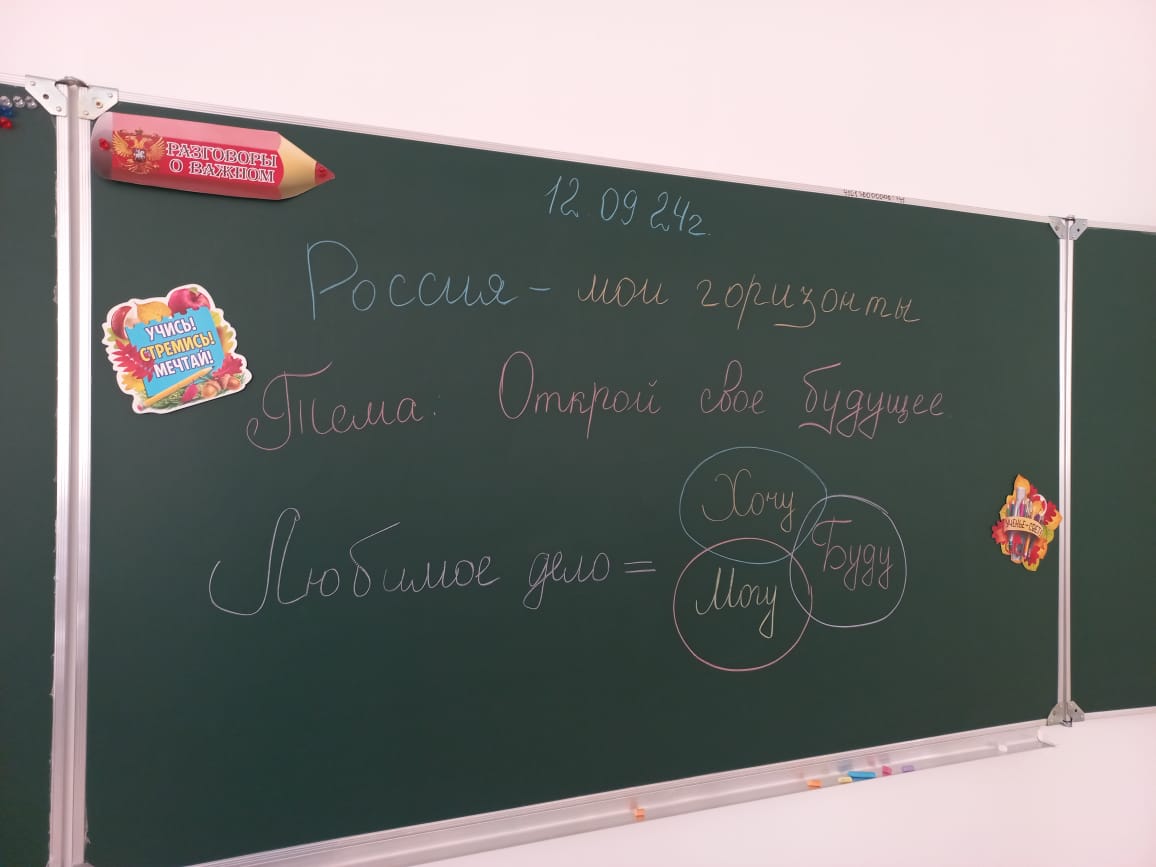 РАЗГОВОРЫ
О ВАЖНОМ
12.09 24г.
Россия - мои горизонты
УЧИСЬ!
СТРЕМИСЬ!
МЕЧТАЙ!
Тема: Открой свое будущее
Любимое дело =
Хочу
Буду
Могу
УЧЕНЬЕ-СВЕТ!